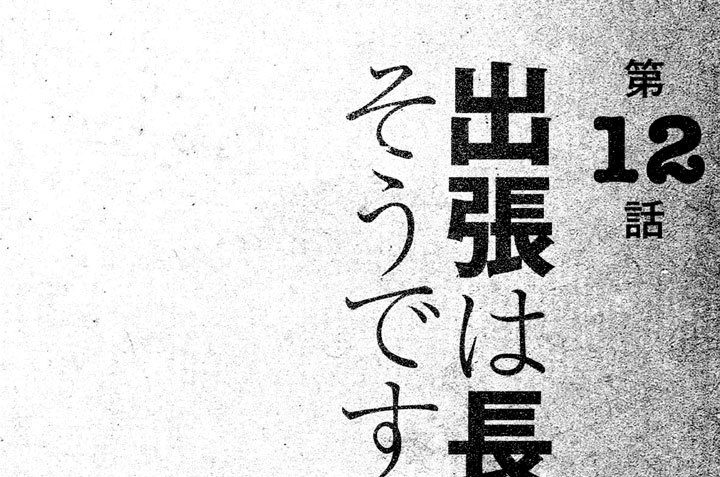 第12話
出張は長
そうです